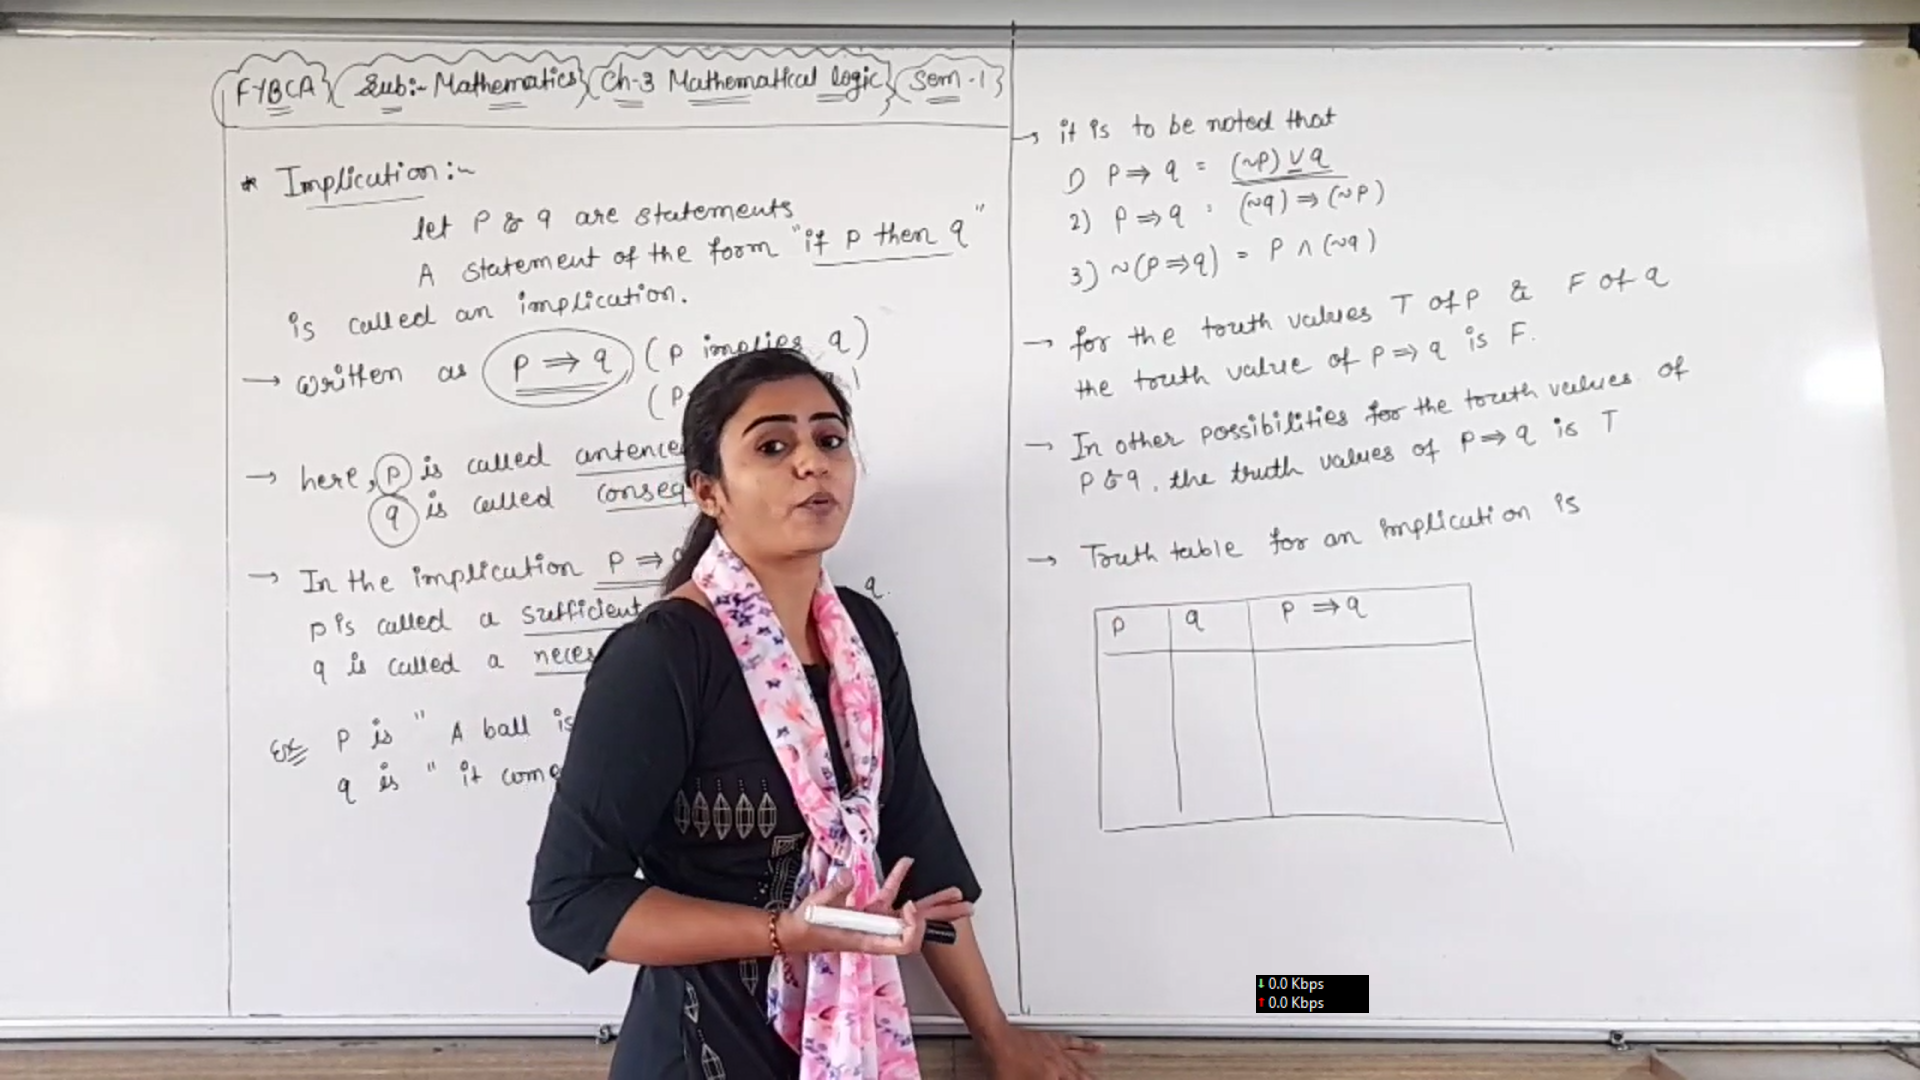 FYBCA Sub:- Mathematics Ch-3 Mathematical logic Sem-1
* Implication :-
let P & q are statements
A statement of the form "if p then q"
is called an implication.
→ written as P ⇒ q (p implies q)
(P
→ here, p is called
q is called
→ In the implication P ⇒ q.
p is called a sufficient
q is called a
Ex P is " A ball is
q is " it
→ it is to be noted that
1) P ⇒ q = (~P) ∨ q
2) P ⇒ q = (~q) ⇒ (~P)
3) ~(P ⇒ q) = P ∧ (~q)
→ for the truth values T of P & F of q
the truth value of P ⇒ q is F.
→ In other possibilities for the truth values of
P & q, the truth values of P ⇒ q is T
→ Truth table for an implication is
P q P ⇒ q
↓ 0.0 Kbps
↑ 0.0 Kbps